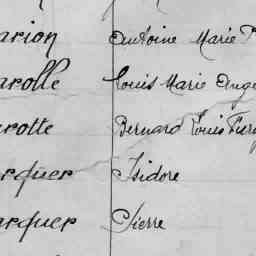 arion Antoine Marie
arolle Louis Marie Ange
arotte Bernard Louis
arquer Isidore
arquer Pierre